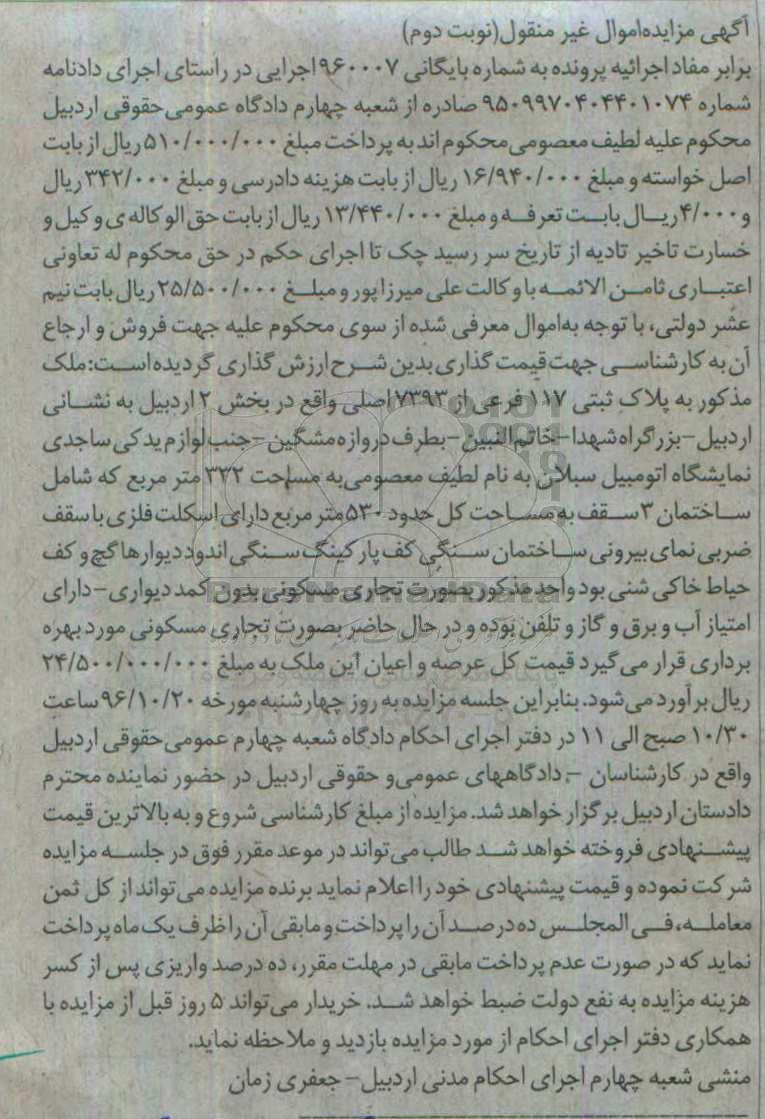 آگهی مزایده‌اموال غیر منقول(نوبت دوم)
برابر مفاد اجرائیه پرونده به شماره بایگانی ۹۶۰۰۰۷ اجرایی در راستای اجرای دادنامه
شماره ۹۵۰۹۹۷۰۴۰۴۴۰۱۰۷۴ صادره از شعبه چهارم دادگاه عمومی‌حقوقی اردبیل
محکوم علیه لطیف معصومی‌محکوم اند به پرداخت مبلغ ۵۱۰/۰۰۰/۰۰۰ ریال از بابت
اصل خواسته و مبلغ ۱۶/۹۴۰/۰۰۰ ریال از بابت هزینه دادرسی و مبلغ ۳۴۲/۰۰۰ ریال
و ۴/۰۰۰ ریال بابت تعرفه و مبلغ ۱۳/۴۴۰/۰۰۰ ریال از بابت حق الوکاله ی وکیل و
خسارت تاخیر تادیه از تاریخ سر رسید چک تا اجرای حکم در حق محکوم له تعاونی
اعتباری ثامن الائمه با وکالت علی میرزا پور و مبلغ ۲۵/۵۰۰/۰۰۰ ریال بابت نیم
عشر دولتی، با توجه به‌اموال معرفی شده از سوی محکوم علیه جهت فروش و ارجاع
آن به کارشناسی جهت قیمت گذاری بدین شرح ارزش گذاری گردیده‌است:ملک
مذکور به پلاک ثبتی ۱۱۷ فرعی از ۷۳۹۳ اصلی واقع در بخش ۲ اردبیل به نشانی
اردبیل-بزرگراه شهدا-خاتم النبین-بطرف دروازه مشگین-جنب لوازم یدکی ساجدی
نمایشگاه اتومبیل سبلان به نام لطیف معصومی‌به مساحت ۳۳۲ متر مربع که شامل
ساختمان ۳ سقف به مساحت کل حدود ۵۳۰ متر مربع دارای اسکلت فلزی با سقف
ضربی نمای بیرونی ساختمان سنگی کف پارکینگ سنگی اندود دیوارها گچ و کف
حیاط خاکی شنی بود واحد مذکور بصورت تجاری مسکونی بدون کمد دیواری-دارای
امتیاز آب و برق و گاز و تلفن بوده و در حال حاضر بصورت تجاری مسکونی مورد بهره
برداری قرار می‌گیرد قیمت کل عرصه و اعیان این ملک به مبلغ ۲۴/۵۰۰/۰۰۰/۰۰۰
ریال برآورد می‌شود. بنابراین جلسه مزایده به روز چهارشنبه مورخه ۹۶/۱۰/۲۰ ساعت
۱۰/۳۰ صبح الی ۱۱ در دفتر اجرای احکام دادگاه شعبه چهارم عمومی‌حقوقی اردبیل
واقع در کارشناسان - دادگاههای عمومی‌و حقوقی اردبیل در حضور نماینده محترم
دادستان اردبیل برگزار خواهد شد. مزایده از مبلغ کارشناسی شروع و به بالاترین قیمت
پیشنهادی فروخته خواهد شد طالب می‌تواند در موعد مقرر فوق در جلسه مزایده
شرکت نموده و قیمت پیشنهادی خود را اعلام نماید برنده مزایده می‌تواند از کل ثمن
معامله، فی المجلس ده درصد آن را پرداخت و مابقی آن را ظرف یک ماه پرداخت
نماید که در صورت عدم پرداخت مابقی در مهلت مقرر، ده درصد واریزی پس از کسر
هزینه مزایده به نفع دولت ضبط خواهد شد. خریدار می‌تواند ۵ روز قبل از مزایده با
همکاری دفتر اجرای احکام از مورد مزایده بازدید و ملاحظه نماید.
منشی شعبه چهارم اجرای احکام مدنی اردبیل- جعفری زمان